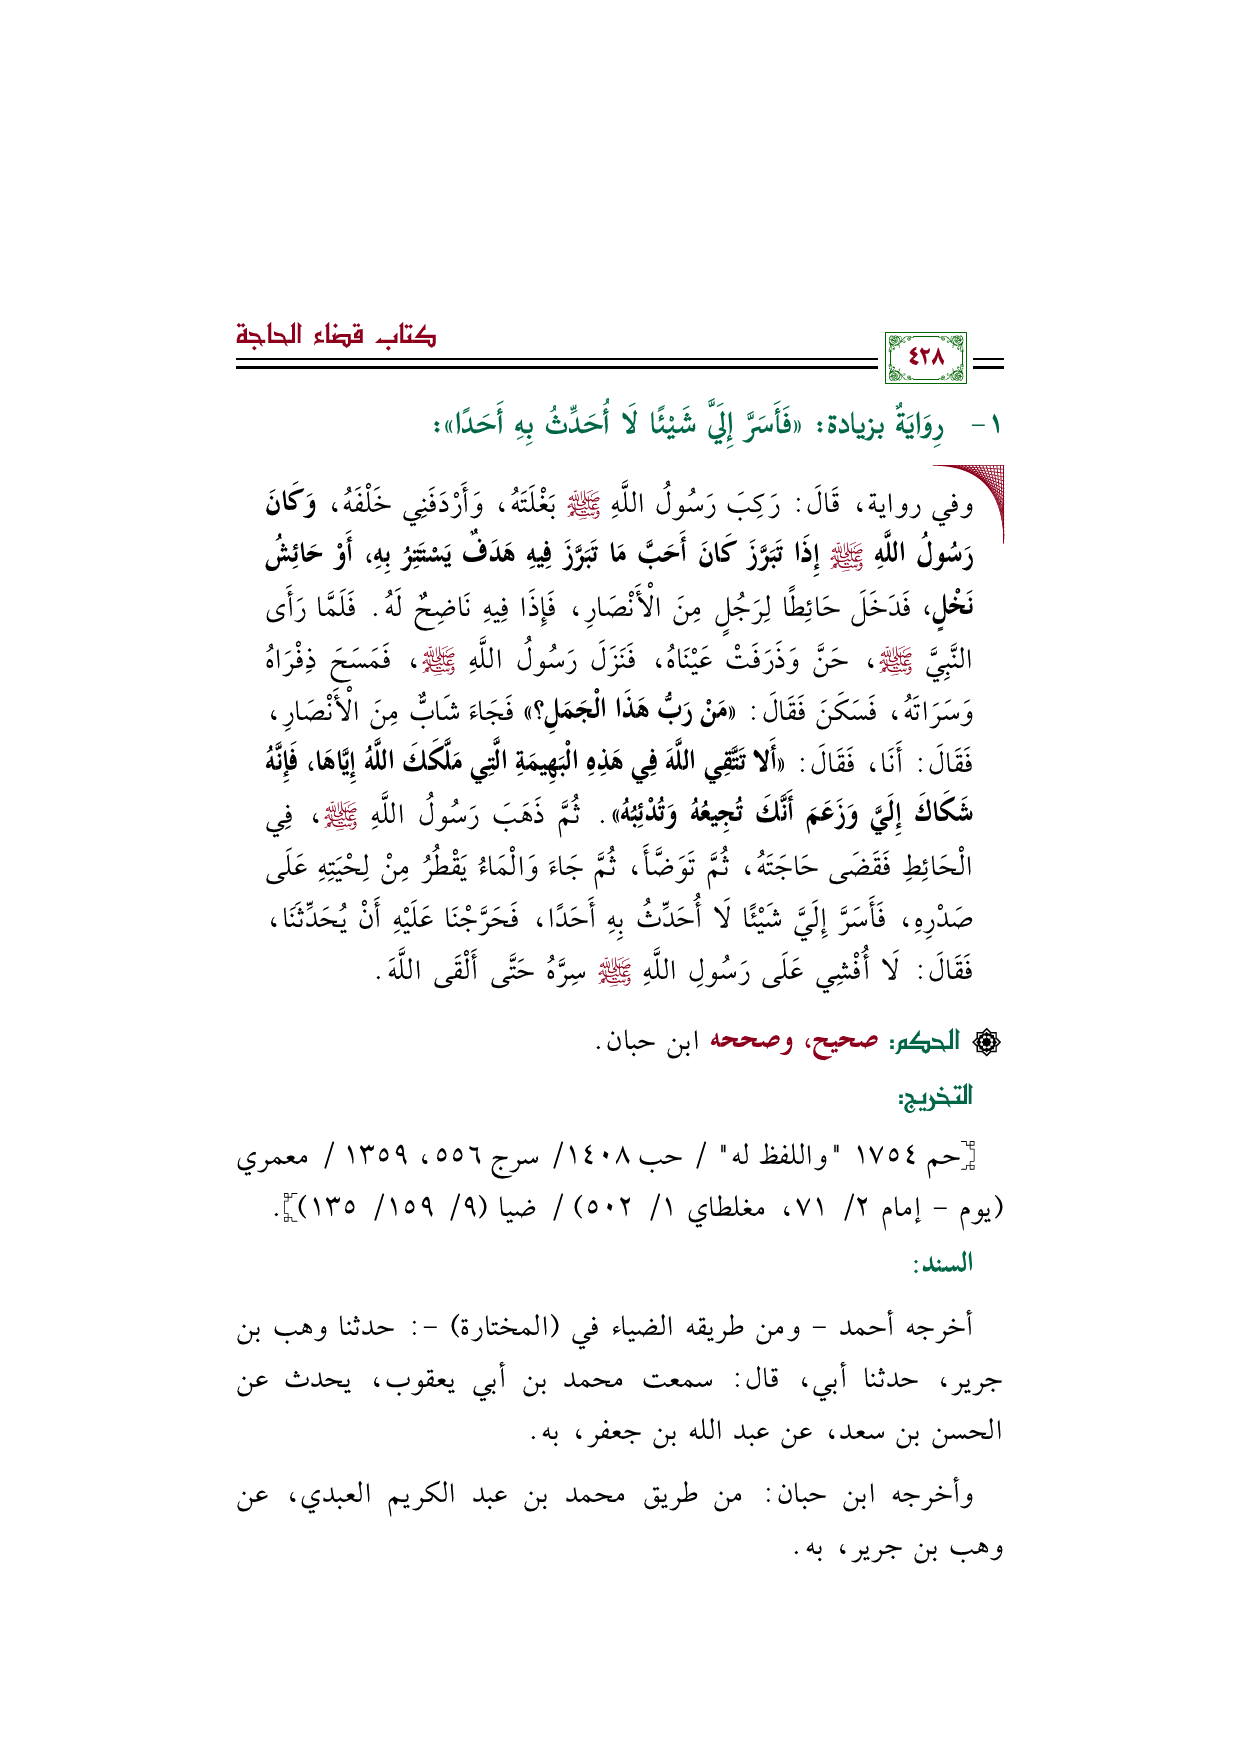 كتاب قضاء الحاجة
٤٢٨
١- رِوَايَةٌ بزيادة: «فَأَسَرَّ إِلَيَّ شَيْئًا لَا أُحَدِّثُ بِهِ أَحَدًا»:
وفي رواية، قَالَ: رَكِبَ رَسُولُ اللَّهِ ﷺ بَغْلَتَهُ، وَأَرْدَفَنِي خَلْفَهُ، وَكَانَ
رَسُولُ اللَّهِ ﷺ إِذَا تَبَرَّزَ كَانَ أَحَبَّ مَا تَبَرَّزَ فِيهِ هَدَفٌ يَسْتَتِرُ بِهِ، أَوْ حَائِشُ
نَخْلٍ، فَدَخَلَ حَائِطًا لِرَجُلٍ مِنَ الْأَنْصَارِ، فَإِذَا فِيهِ نَاضِحٌ لَهُ. فَلَمَّا رَأَى
النَّبِيَّ ﷺ، حَنَّ وَذَرَفَتْ عَيْنَاهُ، فَنَزَلَ رَسُولُ اللَّهِ ﷺ، فَمَسَحَ ذِفْرَاهُ
وَسَرَاتَهُ، فَسَكَنَ فَقَالَ: «مَنْ رَبُّ هَذَا الْجَمَلِ؟» فَجَاءَ شَابٌّ مِنَ الْأَنْصَارِ،
فَقَالَ: أَنَا، فَقَالَ: «أَلا تَتَّقِي اللَّهَ فِي هَذِهِ الْبَهِيمَةِ الَّتِي مَلَّكَكَ اللَّهُ إِيَّاهَا، فَإِنَّهُ
شَكَاكَ إِلَيَّ وَزَعَمَ أَنَّكَ تُجِيعُهُ وَتُدْئِبُهُ». ثُمَّ ذَهَبَ رَسُولُ اللَّهِ ﷺ، فِي
الْحَائِطِ فَقَضَى حَاجَتَهُ، ثُمَّ تَوَضَّأَ، ثُمَّ جَاءَ وَالْمَاءُ يَقْطُرُ مِنْ لِحْيَتِهِ عَلَى
صَدْرِهِ، فَأَسَرَّ إِلَيَّ شَيْئًا لَا أُحَدِّثُ بِهِ أَحَدًا، فَحَرَّجْنَا عَلَيْهِ أَنْ يُحَدِّثَنَا،
فَقَالَ: لَا أُفْشِي عَلَى رَسُولِ اللَّهِ ﷺ سِرَّهُ حَتَّى أَلْقَى اللَّهَ.
الحكم: صحيح، وصححه ابن حبان.
التخريج:
[حم ١٧٥٤ "واللفظ له" / حب ١٤٠٨/ سرج ٥٥٦، ١٣٥٩ / معمري
(يوم - إمام ٢/ ٧١، مغلطاي ١/ ٥٠٢) / ضيا (٩/ ١٥٩/ ١٣٥)].
السند:
أخرجه أحمد - ومن طريقه الضياء في (المختارة) -: حدثنا وهب بن
جرير، حدثنا أبي، قال: سمعت محمد بن أبي يعقوب، يحدث عن
الحسن بن سعد، عن عبد الله بن جعفر، به.
وأخرجه ابن حبان: من طريق محمد بن عبد الكريم العبدي، عن
وهب بن جرير، به.